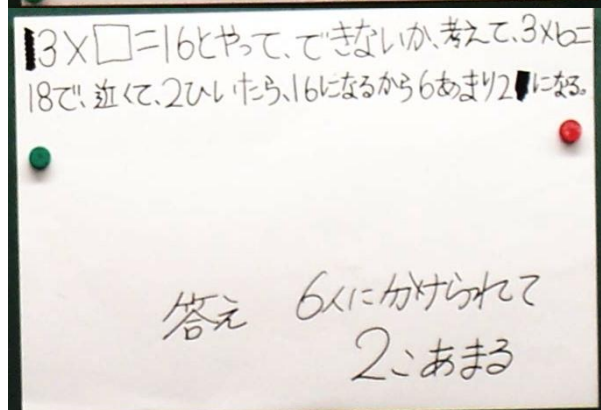 3×□=16とやって、できないか、考えて、3×6=
18で、近くて、2ひいたら、16になるから6あまり2になる。
答え 6人にかけられて
2こあまる